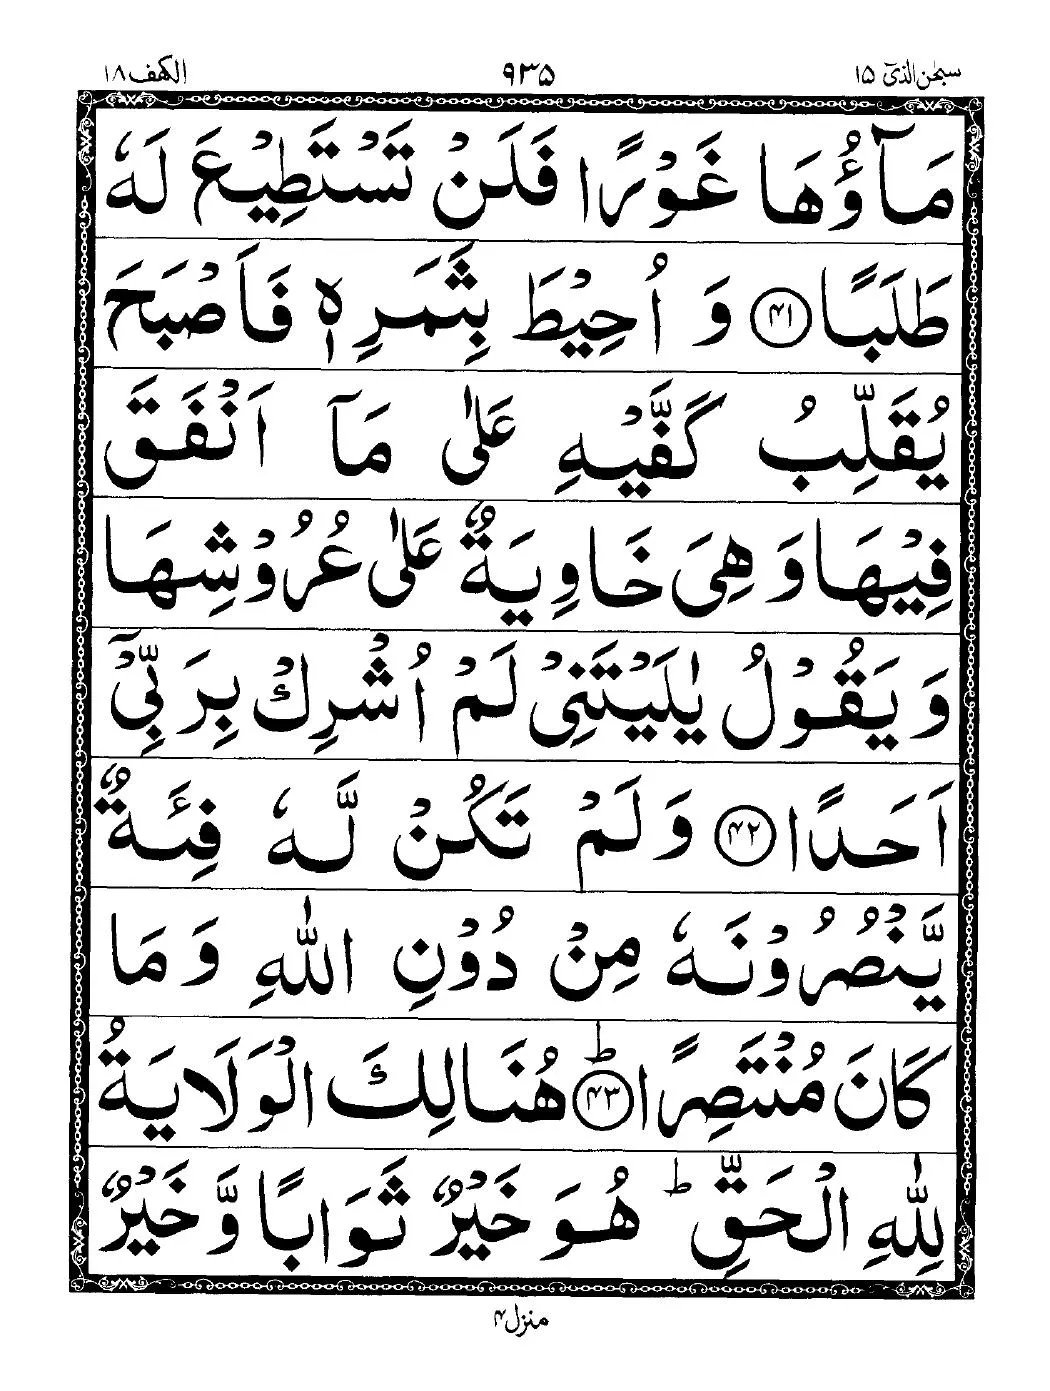 سبحٰن الذیٓ ۱۵ ۹۳۵ الکهف ۱۸
مَآؤُهَا غَوْرًا فَلَنْ تَسْتَطِيْعَ لَهٗ
طَلَبًا ﴿۴۱﴾ وَ اُحِيْطَ بِثَمَرِهٖ فَاَصْبَحَ
يُقَلِّبُ كَفَّيْهِ عَلٰى مَاۤ اَنْفَقَ
فِيْهَا وَ هِىَ خَاوِيَةٌ عَلٰى عُرُوْشِهَا
وَ يَقُوْلُ يٰلَيْتَنِىْ لَمْ اُشْرِكْ بِرَبِّىْۤ
اَحَدًا ﴿۴۲﴾ وَ لَمْ تَكُنْ لَّهٗ فِئَةٌ
يَّنْصُرُوْنَهٗ مِنْ دُوْنِ اللّٰهِ وَ مَا
كَانَ مُنْتَصِرًا ؕ﴿۴۳﴾ هُنَالِكَ الْوَلَايَةُ
لِلّٰهِ الْحَقِّ ؕ هُوَ خَيْرٌ ثَوَابًا وَّ خَيْرٌ
منزل ۴